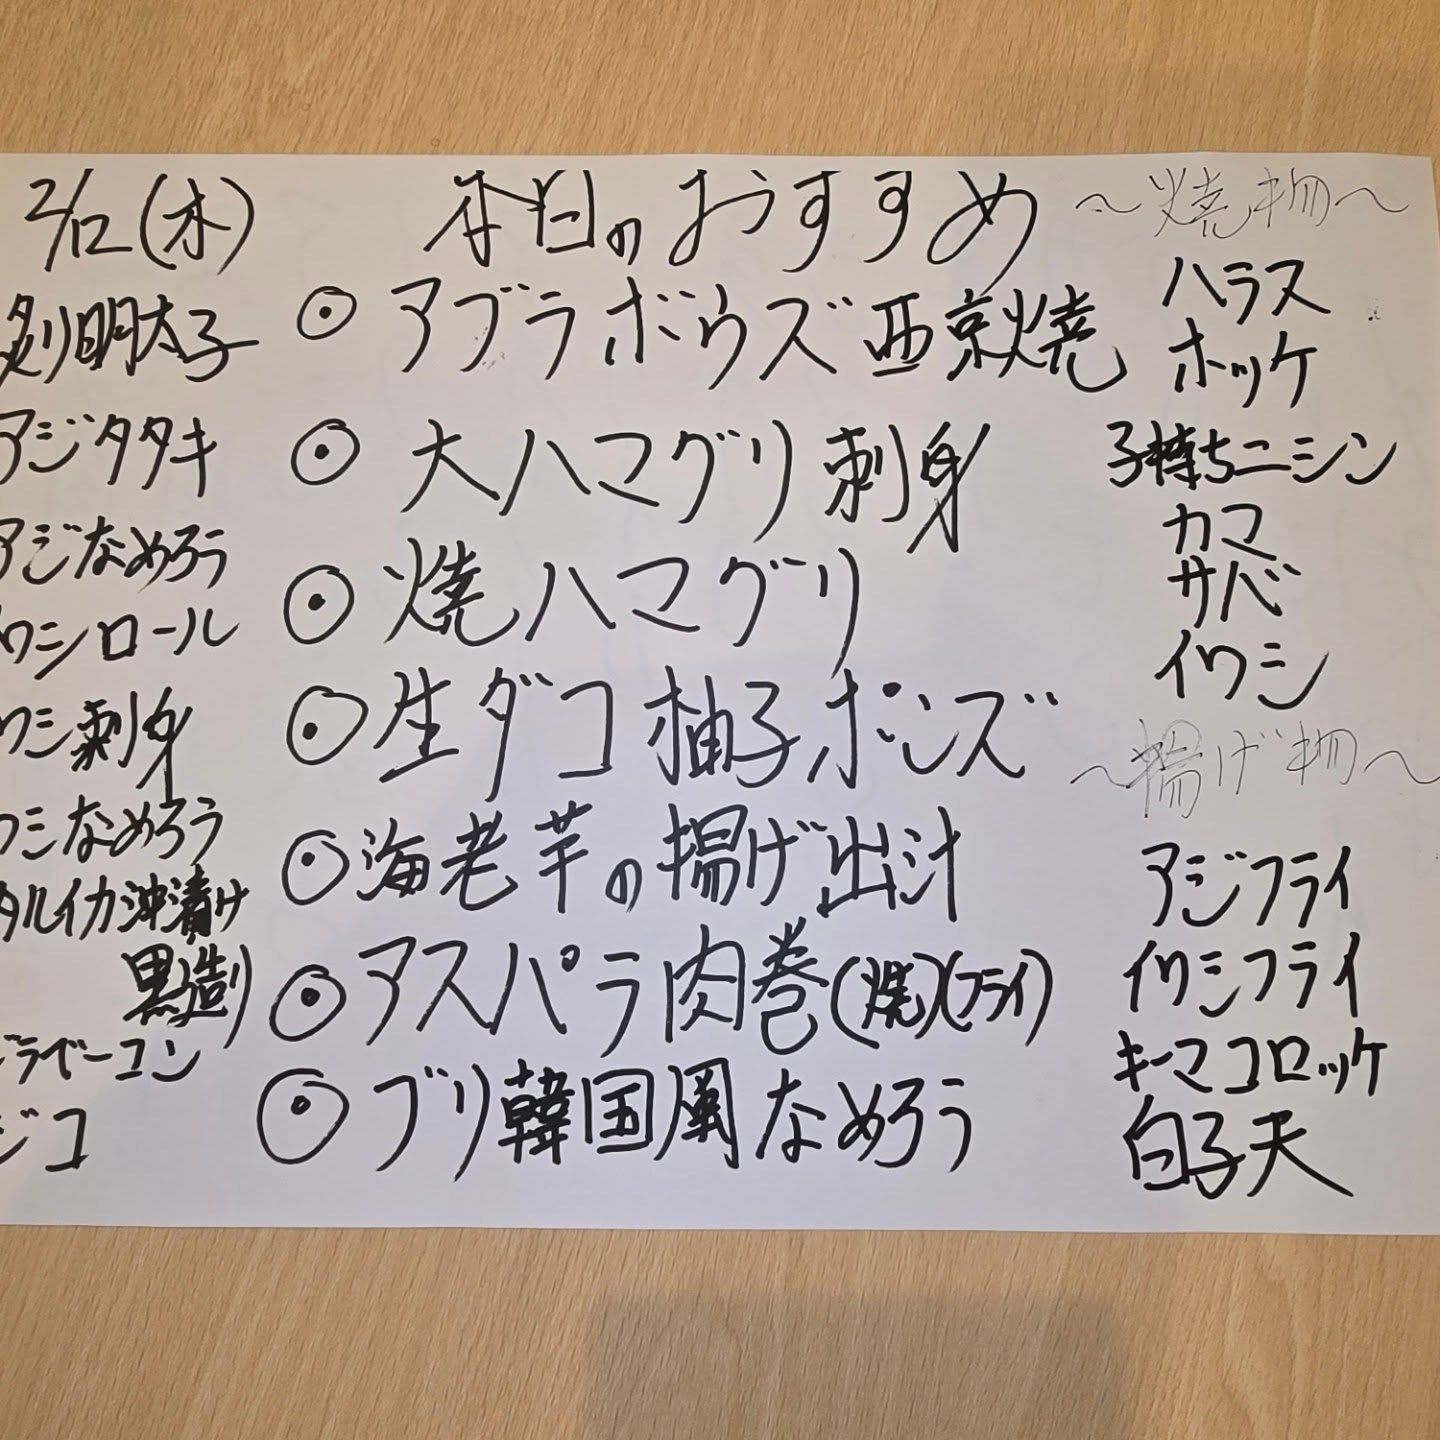 2/12(木)
炙り明太子
アジタタキ
アジなめろう
ワシロール
ワシ刺身
ワシなめろう
タルイカ沖漬け
黒造り
ラベーコン
ジコ
本日のおすすめ
◎アブラボウズ西京焼
◎大ハマグリ刺身
◎焼ハマグリ
◎生ダコ柚子ポンズ
◎海老芋の揚げ出汁
◎アスパラ肉巻(焼)(フライ)
◎ブリ韓国風なめろう
〜焼物〜
ハラス
ホッケ
子持ちニシン
カマ
サバ
イワシ
〜揚げ物〜
アジフライ
イワシフライ
キーマコロッケ
白子天